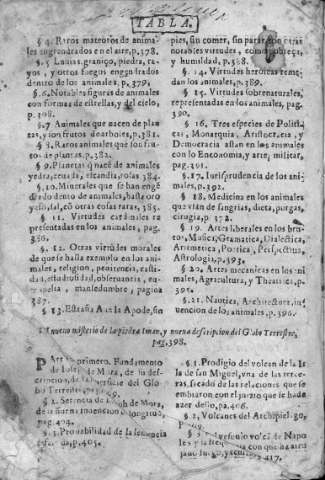 TABLA.
§ 4. Raros mateoros de anima-
les engendrados en el aire, p.378.
§ 5. Lluvias, granizo, piedra, ra-
yos, y otros fuegos engendrados
dentro de los animales, p.379.
§. 6. Notables figuras de animales
con formas de estrellas, y del cielo,
p.308.
§.7 Animales que nacen de plan-
tas, y son frutos de arboles, p.381.
§. 8. Raros animales que son fru-
tos de plantas, p.382.
§.9. Planetas q nacē de animales
yedra, escandia, rosas 384.
§. 10. Minerales que se han enge
drado dentro de animales, hasta oro
yeso, sal, cō otras cosas raras, 385.
§. 11. Virtudes cardinales re
presentadas en los animales, pag.
386.
§. 12. Otras virtudes morales
de que se halla exemplo en los anima-
les, religion, penitencia, casti-
dad, estudiosidad, observancia, eu-
trapelia, mansedumbre, pagina
387.
§ 13. Estraña Ave la Apode, sin
pies, sin comer, sin parar, con otras
notables virtudes, como pobreça,
y humildad, p.388.
§. 14. Virtudes heroicas remē-
dan los animales, p.390.
§. 15. Virtudes sobrenaturales,
representadas en los animales, pag.
390.
§. 16. Tres especies de Politi-
cas, Monarquia, Aristocracia, y
Democracia astan en los animales
con lo Economia, y arte, militar,
pag. 391.
§.17. Iurisprudencia de los ani-
males, p.392.
§. 18. Medicina en los animales
que vsan de sangrias, dieta, purgas,
cirugia, p. 372.
§. 19. Artes liberales en los bru-
tos, Musica, Gramatica, Dialectica,
Aritmetica, Poetica, Perspectiva,
Astrologia, p.393.
§. 20. Artes mecanicas en los ani-
males, Agricultura, y Theatrica, p.
395.
§.21. Nautica, Architectura, in-
vencion de los animales, p.396.
nuevo misterio de la piedra Iman, y nueva descripcion del Globo Terrestre,
pag.398.
Parte primero. Fundamento
de de Mora, de su des-
cripcion, de la superficie del Glo
bo Terrestre
§ 2. Sentencia de de Mora,
de la invencion de longitud,
pag.404.
§.3. Probabilidad de la sentencia
p.405.
§.1. Prodigio del volcan de la Is
la de san Miguel, vna de las terce-
ras, sacado de las relaciones que se
embiaron con el juizio que se hade
azer desto, pa.406.
§. 2. Volcanes del Archipielago,
§ 3. Vesuvio volcā de Napo
les y la frequencia con que ha arro
jado fuego, y 417.